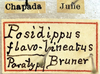 Chapada June
Posidippus
flavo-lineatus
Paratype Bruner